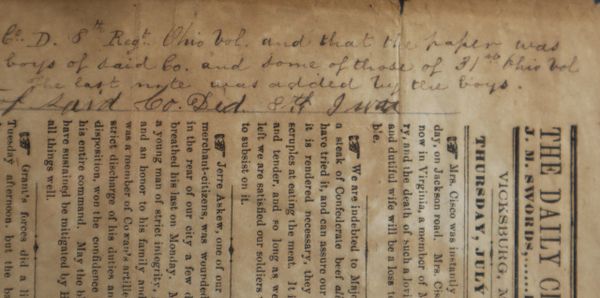 Co. D. 8th Regt. Ohio Vol. and that the paper was
boys of said Co. and some of those of 31st Ohio Vol
The last note was added by the boys.
of said Co. Ded. 8th
THE DAILY C
J. M. SWORDS,......
VICKSBURG, M
THURSDAY, JULY
☞ Mrs. Cisco was instantly
day, on Jackson road. Mrs. Cis
now in Virginia, a member of
ry, and the death of such a lovi
and dutiful wife will be a loss t
ble.
☞ We are indebted to Maj
a steak of Confederate beef
have tried it, and can assure our
it is rendered necessary, they
scruples at eating the meat. It i
and tender, and so long as we
left we are satisfied our soldiers
to subsist on it.
☞ Jerre Askew, one of our
merchant-citizens, was wounded
in the rear of our city a few d
breathed his last on Monday. M
a young man of strict integrity,
and an honor to his family and
was a member of Cowan's artille
strict discharge of his duties an
disposition, won the confidence
his entire command. May the b
have sustained be mitigated by H
all things well.
☞ Grant's forces did a li
Tuesday afternoon, but the b